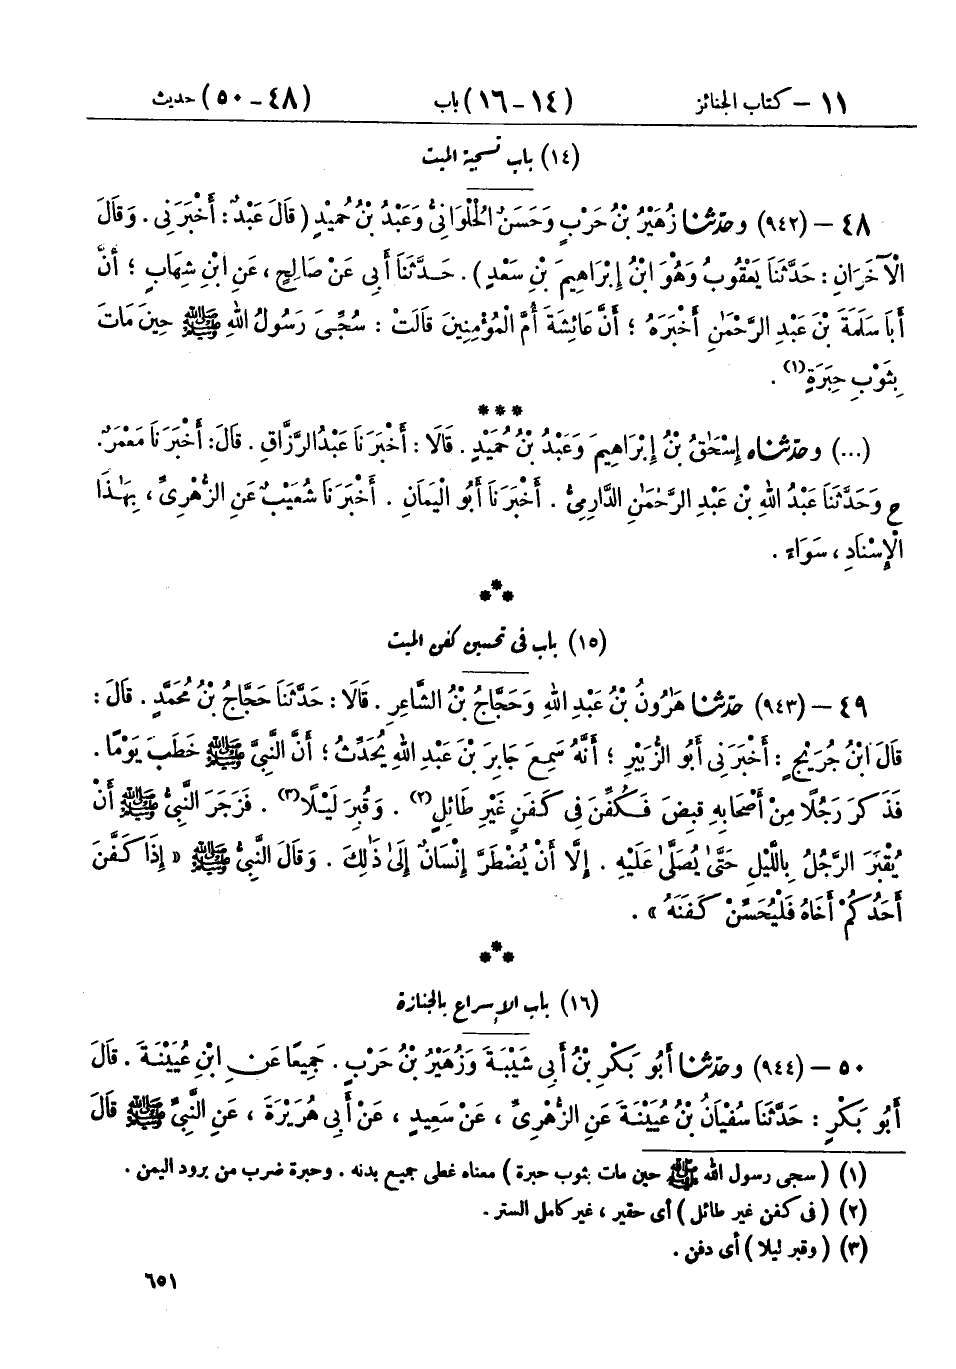 ١١ – كتاب الجنائز (١٤ – ١٦) باب (٤٨ – ٥٠) حديث
(١٤) باب تسجية الميت
٤٨ – (٩٤٢) وحَدَّثَنَا زُهَيْرُ بْنُ حَرْبٍ وَحَسَنٌ الْحُلْوَانِىُّ وَعَبْدُ بْنُ حُمَيْدٍ ( قَالَ عَبْدٌ : أَخْبَرَنِى . وَقَالَ
الْآخَرَانِ : حَدَّثَنَا يَعْقُوبُ وَهُوَ ابْنُ إِبْرَاهِيمَ بْنِ سَعْدٍ ) . حَدَّثَنَا أَبِى عَنْ صَالِحٍ ، عَنِ ابْنِ شِهَابٍ ؛ أَنَّ
أَبَا سَلَمَةَ بْنَ عَبْدِ الرَّحْمَٰنِ أَخْبَرَهُ ؛ أَنَّ عَائِشَةَ أُمَّ الْمُؤْمِنِينَ قَالَتْ : سُجِّىَ رَسُولُ اللهِ ﷺ حِينَ مَاتَ
بِثَوْبِ حِبَرَةٍ(١) .
***
(...) وحَدَّثَنَاه إِسْحَٰقُ بْنُ إِبْرَاهِيمَ وَعَبْدُ بْنُ حُمَيْدٍ . قَالَا : أَخْبَرَنَا عَبْدُ الرَّزَّاقِ . قَالَ : أَخْبَرَنَا مَعْمَرٌ .
ح وَحَدَّثَنَا عَبْدُ اللهِ بْنُ عَبْدِ الرَّحْمَٰنِ الدَّارِمِىُّ . أَخْبَرَنَا أَبُو الْيَمَانِ . أَخْبَرَنَا شُعَيْبٌ عَنِ الزُّهْرِىِّ ، بِهَٰذَا
الْإِسْنَادِ ، سَوَاءً .
***
(١٥) باب فى تحسين كفن الميت
٤٩ – (٩٤٣) حَدَّثَنَا هَارُونُ بْنُ عَبْدِ اللهِ وَحَجَّاجُ بْنُ الشَّاعِرِ . قَالَا : حَدَّثَنَا حَجَّاجُ بْنُ مُحَمَّدٍ . قَالَ :
قَالَ ابْنُ جُرَيْجٍ : أَخْبَرَنِى أَبُو الزُّبَيْرِ ؛ أَنَّهُ سَمِعَ جَابِرَ بْنَ عَبْدِ اللهِ يُحَدِّثُ ؛ أَنَّ النَّبِىَّ ﷺ خَطَبَ يَوْمًا .
فَذَكَرَ رَجُلًا مِنْ أَصْحَابِهِ قُبِضَ فَكُفِّنَ فِى كَفَنٍ غَيْرِ طَائِلٍ(٢) . وَقُبِرَ لَيْلًا(٣) . فَزَجَرَ النَّبِىُّ ﷺ أَنْ
يُقْبَرَ الرَّجُلُ بِاللَّيْلِ حَتَّىٰ يُصَلَّىٰ عَلَيْهِ . إِلَّا أَنْ يُضْطَرَّ إِنْسَانٌ إِلَىٰ ذَٰلِكَ . وَقَالَ النَّبِىُّ ﷺ « إِذَا كَفَّنَ
أَحَدُكُمْ أَخَاهُ فَلْيُحَسِّنْ كَفَنَهُ » .
***
(١٦) باب الإسراع بالجنازة
٥٠ – (٩٤٤) وحَدَّثَنَا أَبُو بَكْرِ بْنُ أَبِى شَيْبَةَ وَزُهَيْرُ بْنُ حَرْبٍ . جَمِيعًا عَنِ ابْنِ عُيَيْنَةَ . قَالَ
أَبُو بَكْرٍ : حَدَّثَنَا سُفْيَانُ بْنُ عُيَيْنَةَ عَنِ الزُّهْرِىِّ ، عَنْ سَعِيدٍ ، عَنْ أَبِى هُرَيْرَةَ ، عَنِ النَّبِىِّ ﷺ قَالَ
(١) ( سجى رسول الله ﷺ حين مات بثوب حبرة ) معناه غطى جميع بدنه . وحبرة ضرب من برود اليمن .
(٢) ( فى كفن غير طائل ) أى حقير ، غير كامل الستر .
(٣) ( وقبر ليلا ) أى دفن .
٦٥١